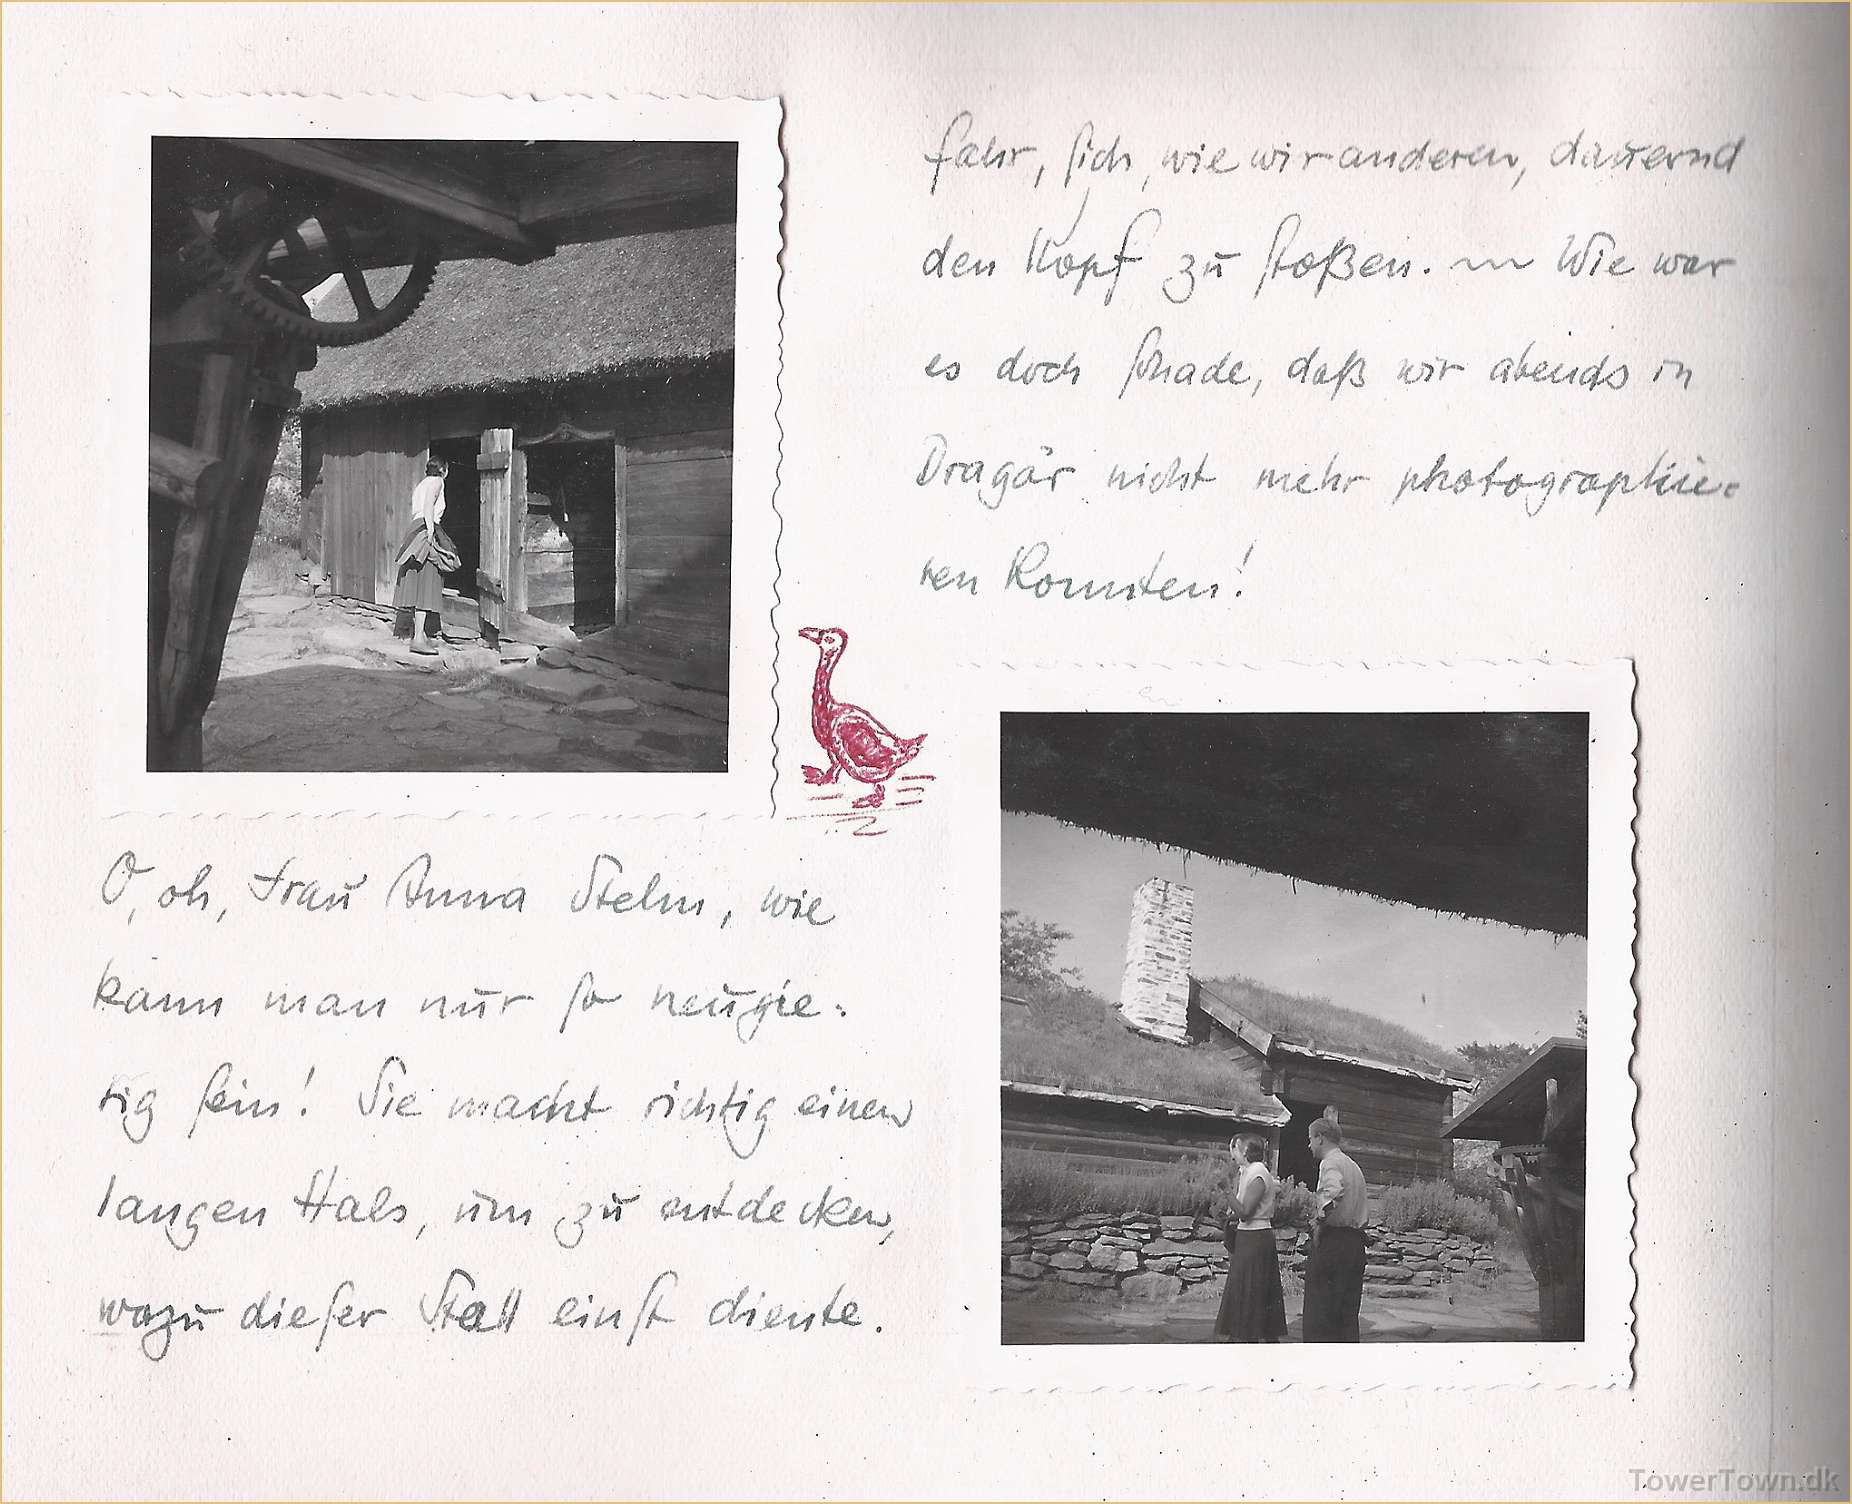 fahr, sich, wie wir anderen, dauernd
den Kopf zu stoßen. Wie war
es doch schade, daß wir abends in
Dragör nicht mehr photographie-
ren konnten!
O, oh, Frau Anna Stelm, wie
kann man nur so neugie-
rig sein! Sie macht richtig einen
langen Hals, um zu entdecken,
wozu dieser Stall einst diente.
TowerTown.dk